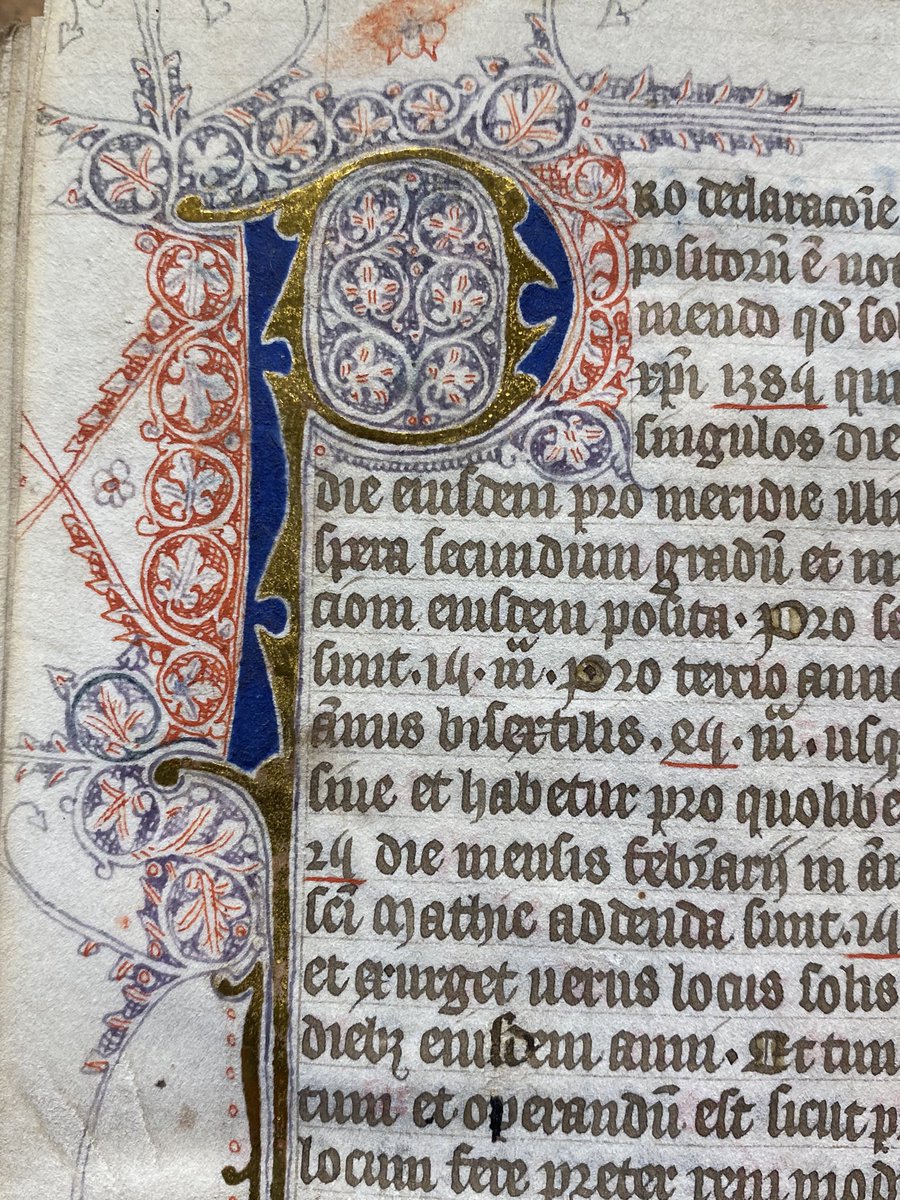 PRO declaracōie
positorū ē not
mendo qđ sol
xp̄i 1384 qui
singulos die
die eiusdem pro meridie illu
spera secundum gradū et mi
ciom eiusdem posita. Pro se
sunt .14. m̄. Pro tercio anno
ānus bisextilis .44. m̄. usq
siue et habetur pro quolibe
24 die mensis febr̄arij in ān
sc̄i Mathie addenda sunt .14
et exurget uerus locus solis
diebꝫ eiusdem anni. Et tun
tum et operandū est sicut p
locum fere preter rem mode